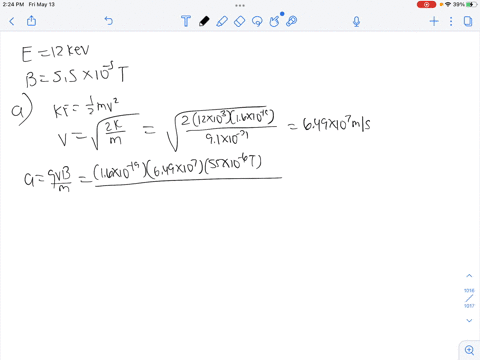 2:24 PM Fri May 13
39%
E = 12 keV
B = 5.5 × 10⁻⁵ T
a) KE = ½mv²
v = √(2K/m) = √(2(12×10³)(1.6×10⁻¹⁹)/9.1×10⁻³¹) = 6.49×10⁷ m/s
a = qvB/m = (1.6×10⁻¹⁹)(6.49×10⁷)(55×10⁻⁶T)
1016
/
1017